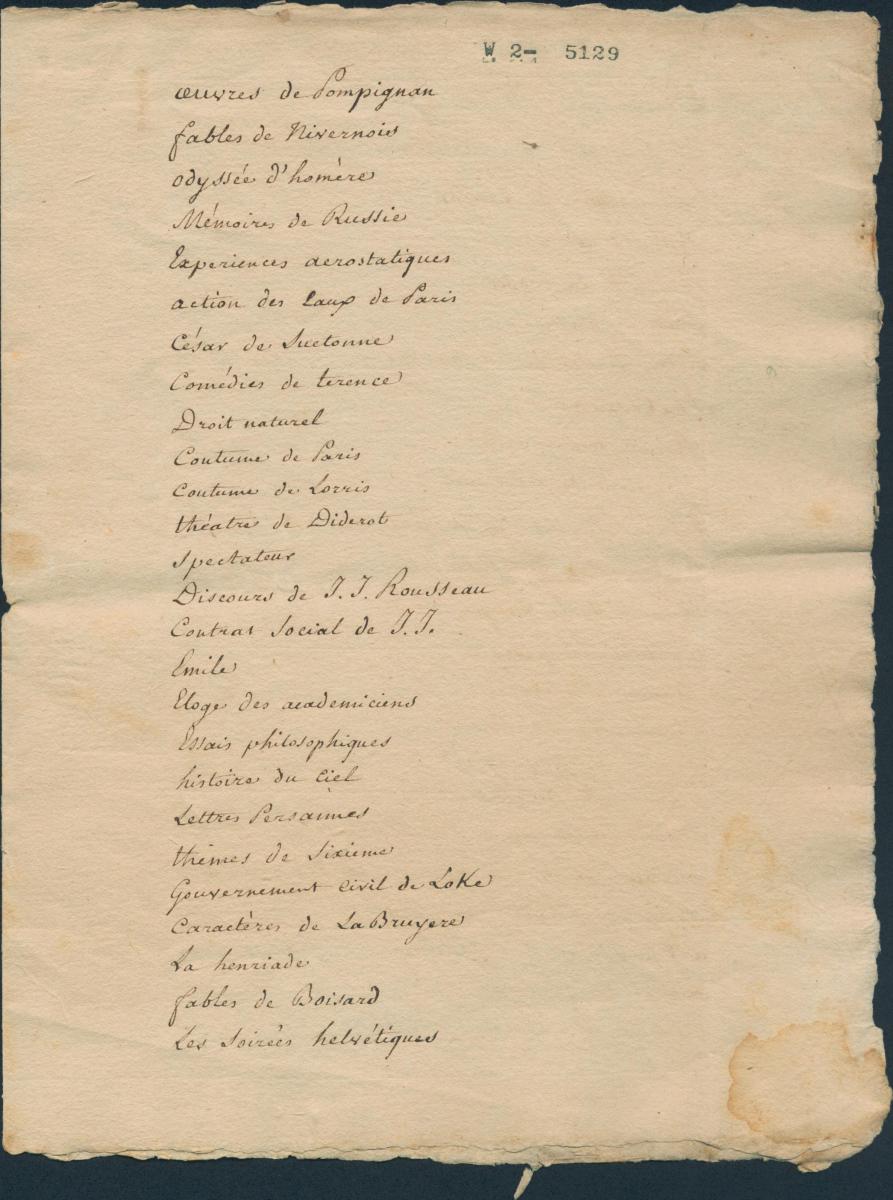 W 2- 5129
œuvres de Pompignan
fables de Nivernois
odyssée d'homère
Mémoires de Russie
Experiences aerostatiques
action des Eaux de Paris
César de Suetonne
Comédies de terence
Droit naturel
Coutume de Paris
coutume de Lorris
théatre de Diderot
Spectateur
Discours de J. J. Rousseau
Contrat Social de J. J.
Emile
Eloge des academiciens
Essais philosophiques
histoire du Ciel
Lettres Persannes
thêmes de Sixieme
Gouvernement Civil de Loke
Caractères de LaBruyere
La henriade
fables de Boisard
Les Soirées helvétiques